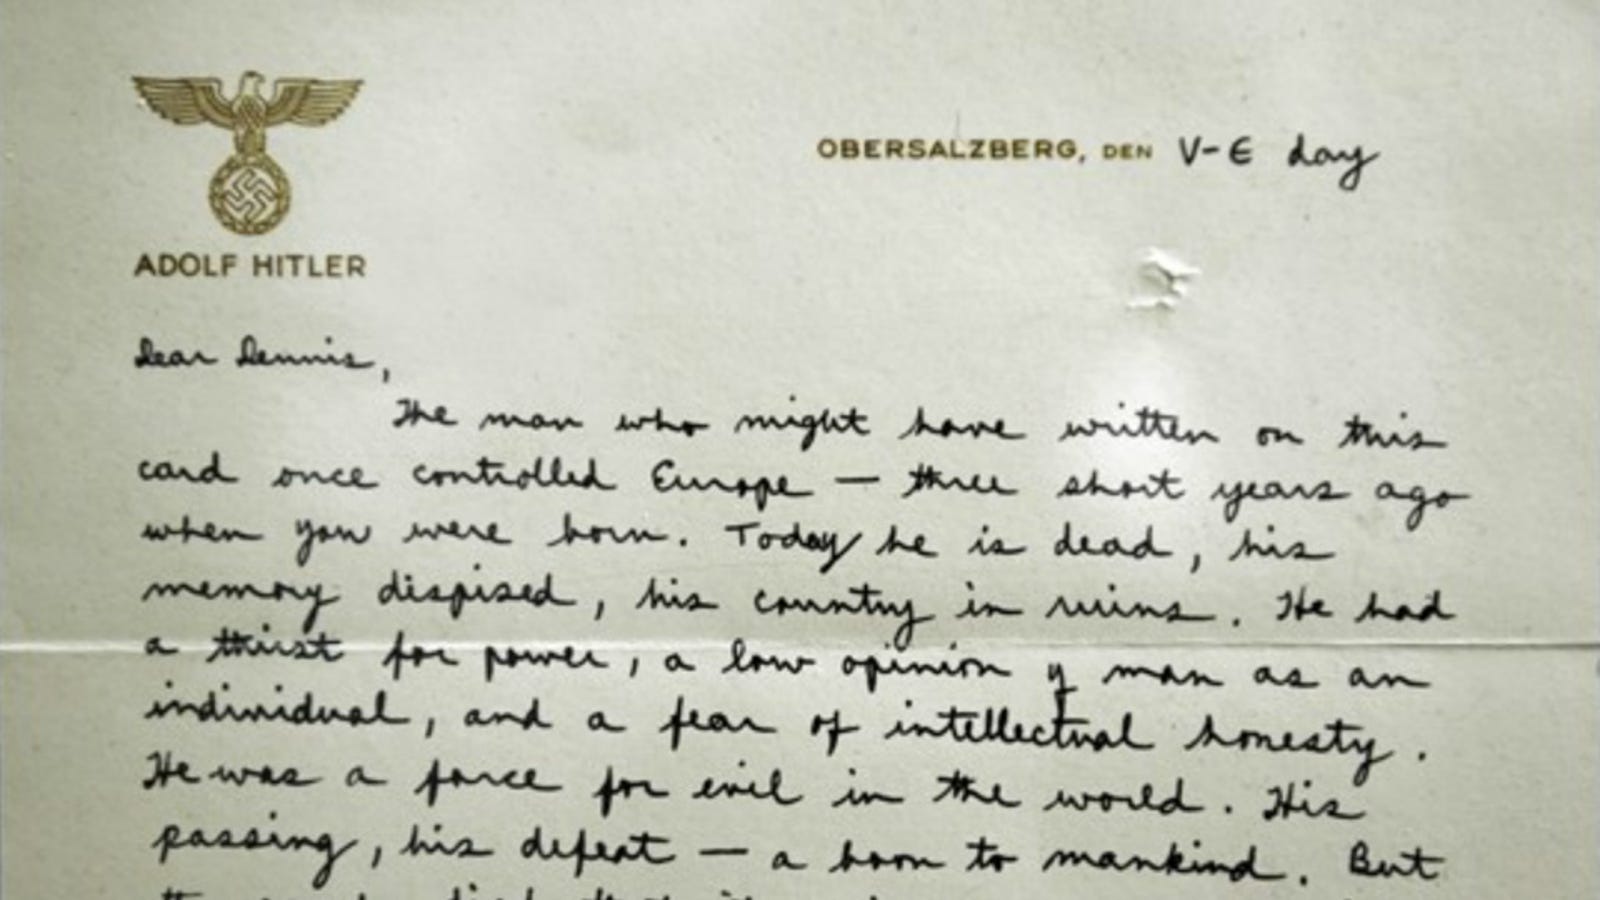 OBERSALZBERG, DEN V-E day
ADOLF HITLER
Dear Dennis,
The man who might have written on this
card once controlled Europe — three short years ago
when you were born. Today he is dead, his
memory despised, his country in ruins. He had
a thirst for power, a low opinion of man as an
individual, and a fear of intellectual honesty.
He was a force for evil in the world. His
passing, his defeat — a boon to mankind. But